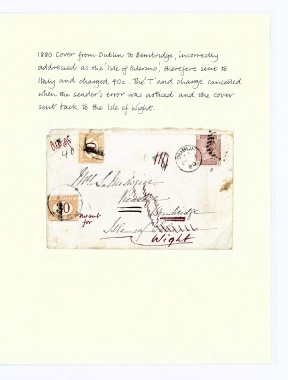 1880 Cover from Dublin to Bembridge, incorrectly
addressed as the 'Isle of Palermo', therefore sent to
Italy and charged 40c. The 'T' and charge cancelled
when the sender's error was noticed and the cover
sent back to the Isle of Wight.
40
DUBLIN
30
meant
for
Bembridge
Isle of
Wight